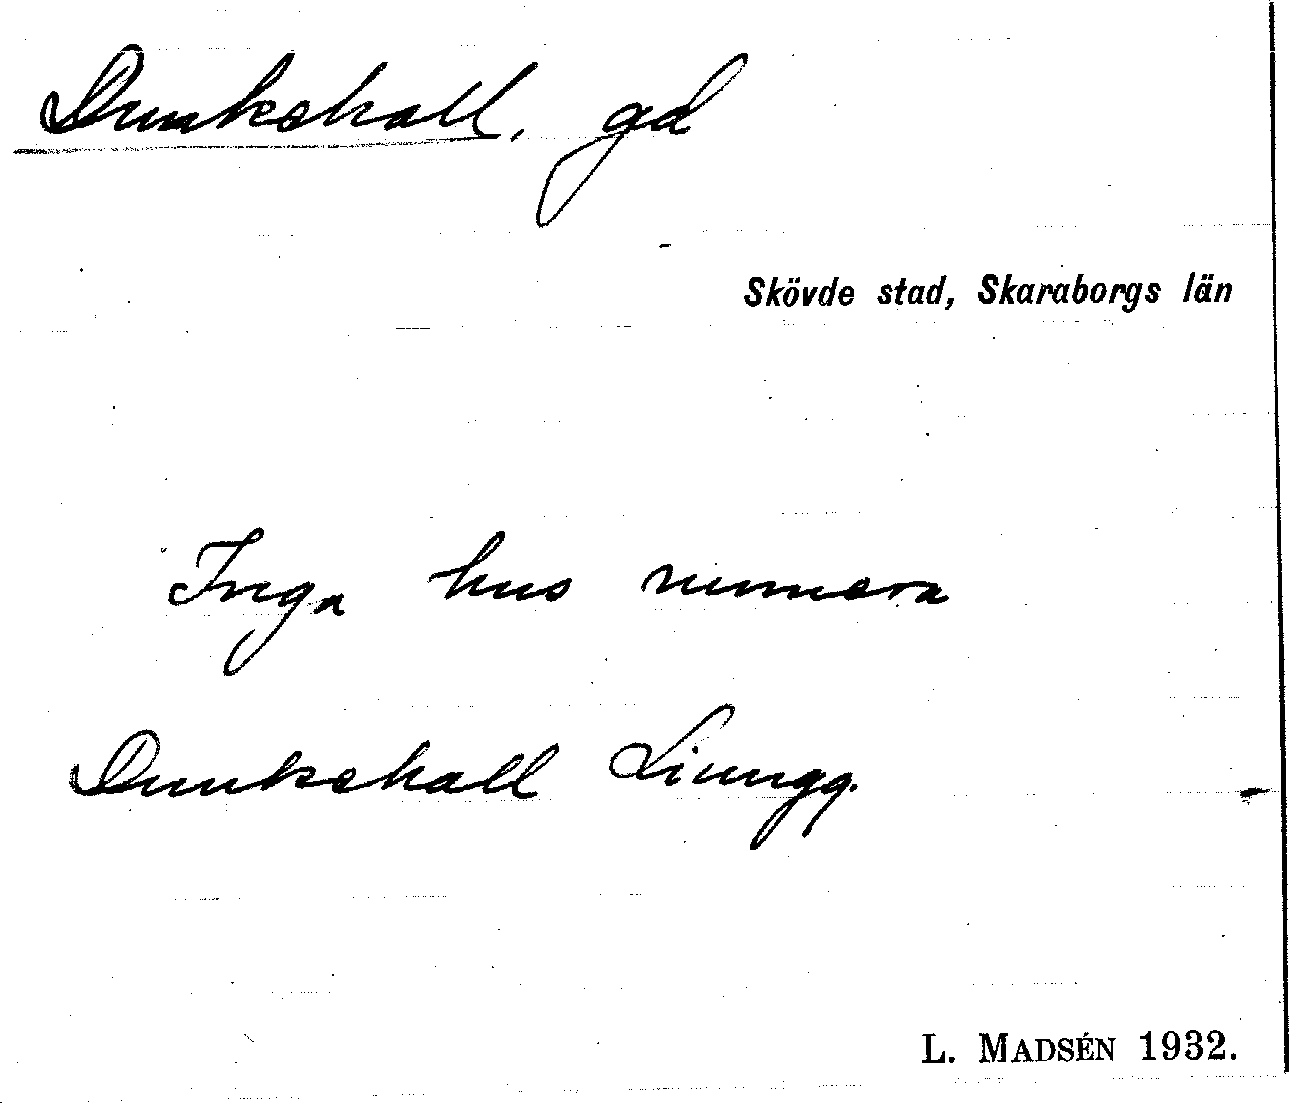 Dunkehall, gd
Skövde stad, Skaraborgs län
Inga hus numera
Dunkehall Ljungg.
L. MADSÉN 1932.